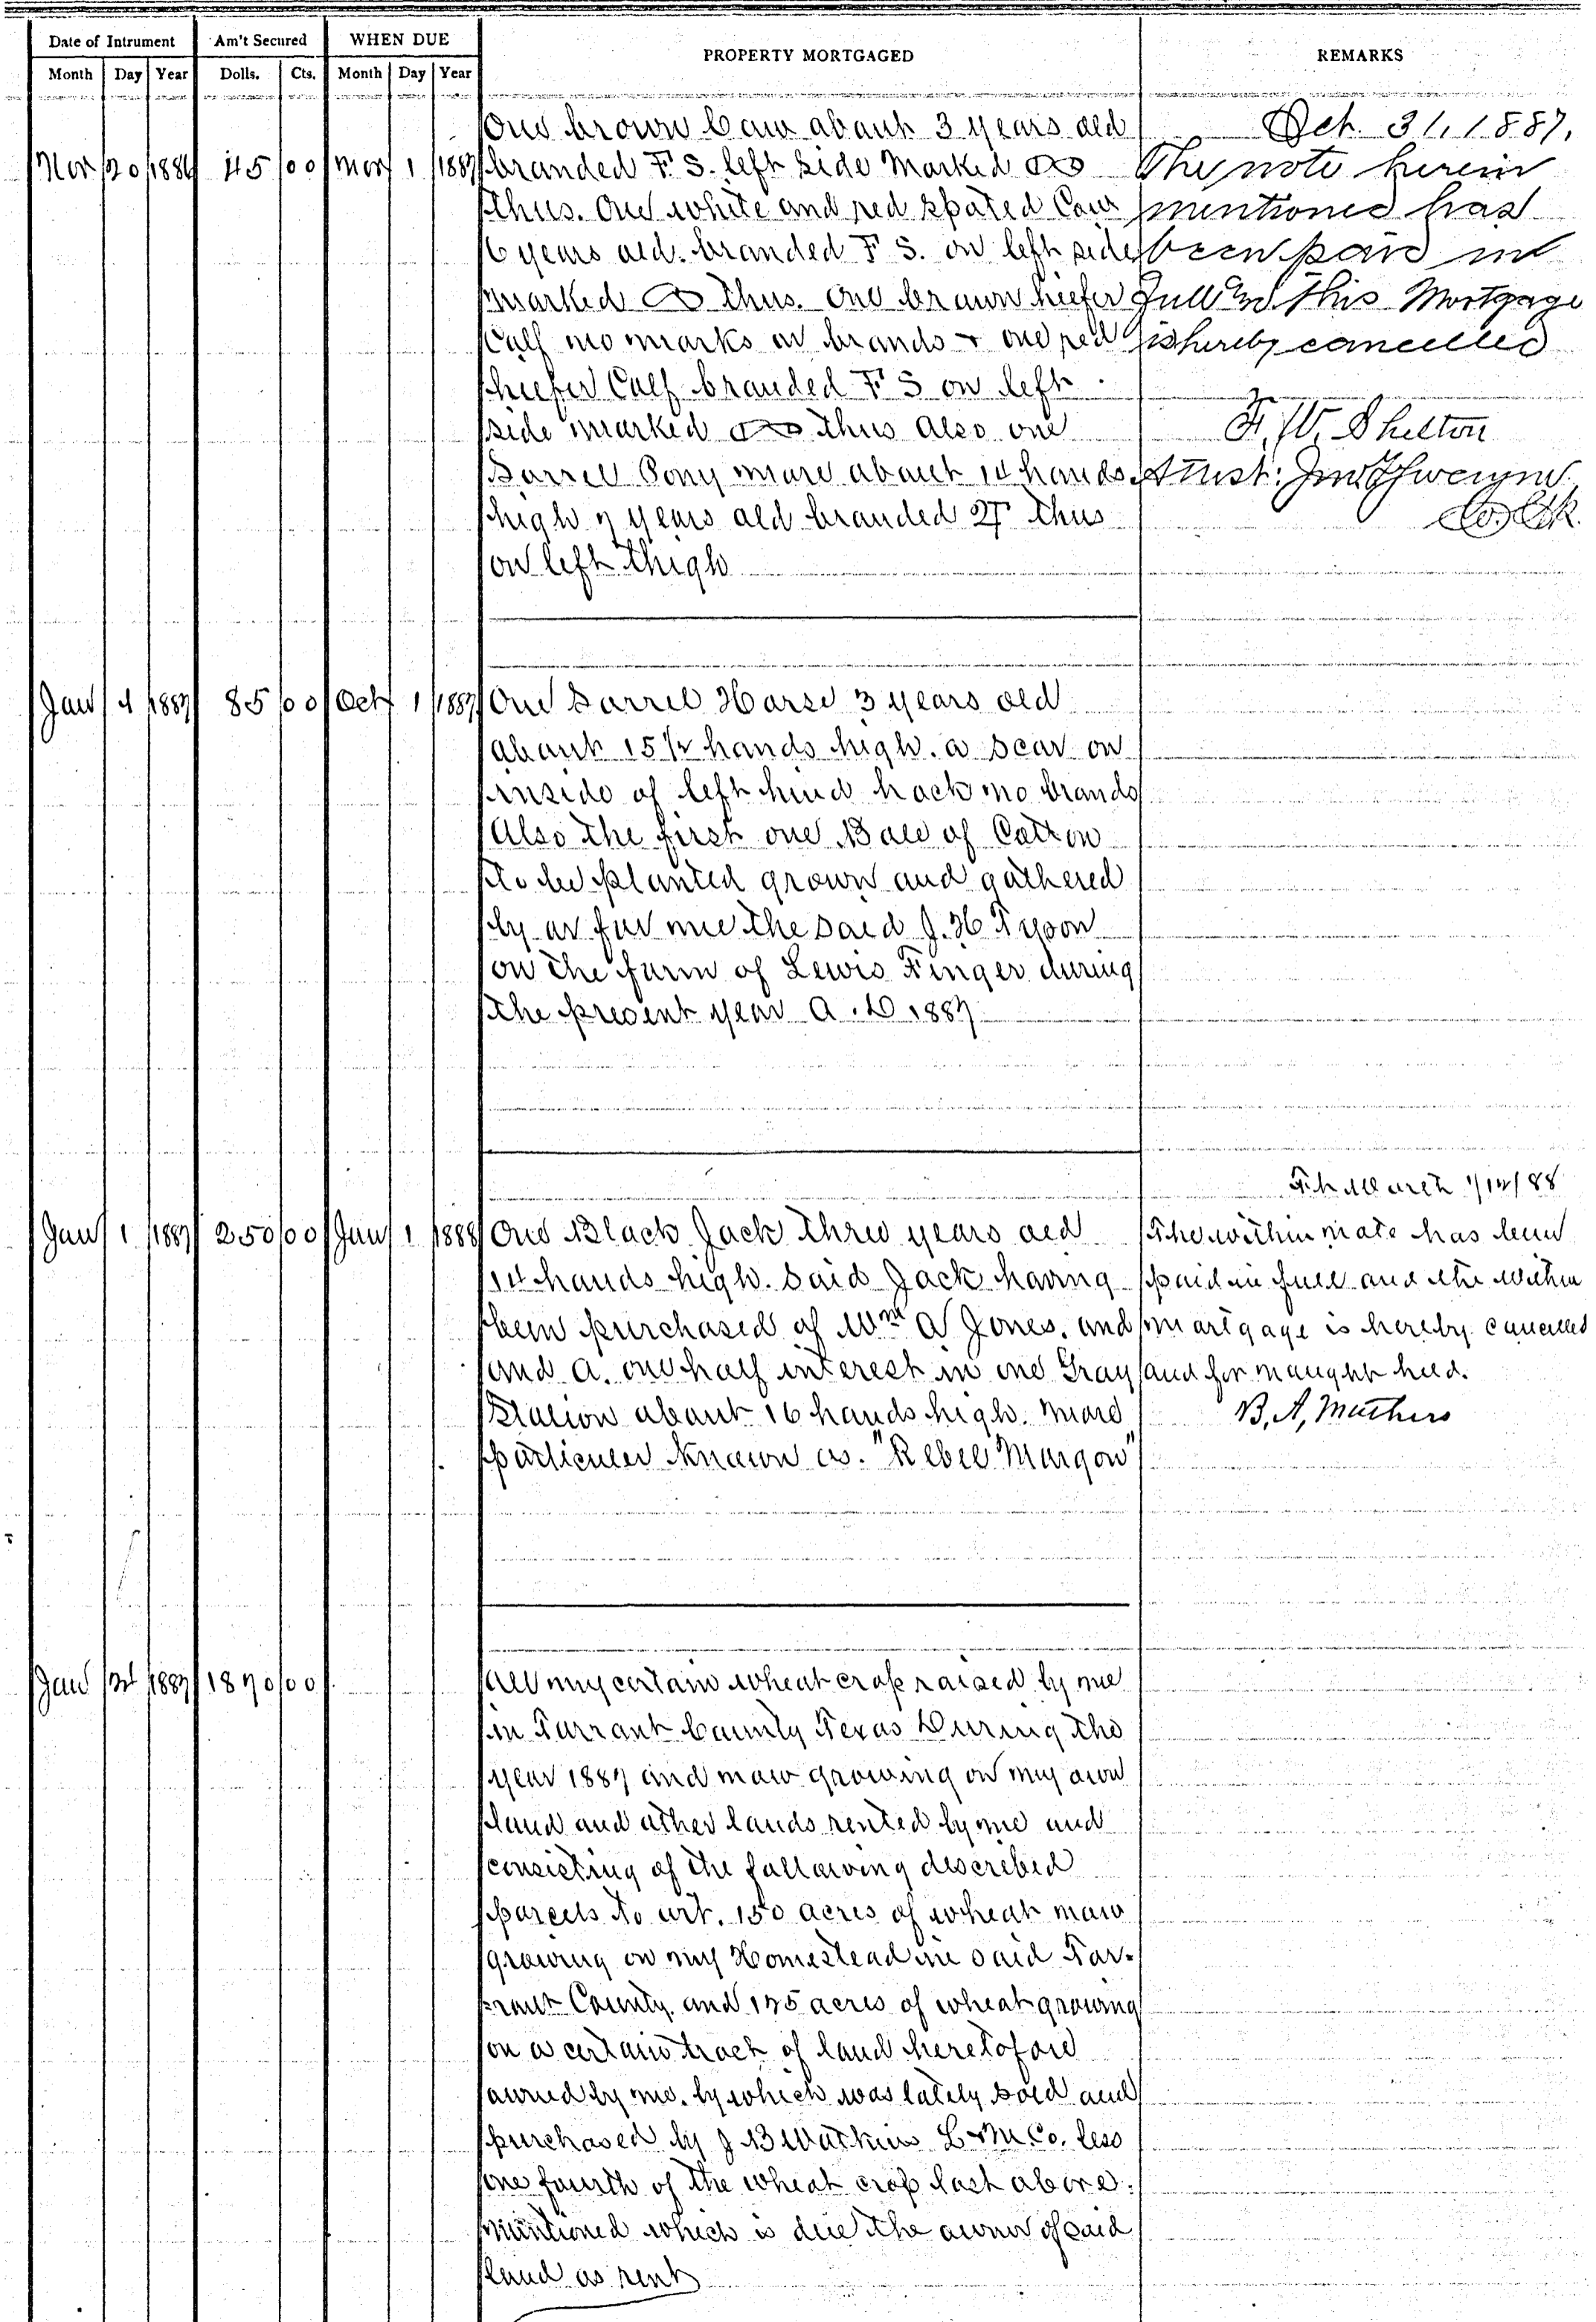 Date of Intrument Am't Secured WHEN DUE PROPERTY MORTGAGED REMARKS
Month Day Year Dolls. Cts. Month Day Year
Nov 20 1886 45 00 Nov 1 1887
One brown Cow about 3 years old
branded F S. left side Marked
thus. One white and red spoted Cow
6 years old. branded F S. on left side
marked thus. One brown heefer
Calf no marks or brands + one red
heefer Calf branded F S on left
side marked thus Also one
Sorrel Pony mare about 14 hands
high 7 years old branded 2T thus
on left thigh
Oct. 31, 1887,
The note herein
mentioned has
been paid in
full and this Mortgage
is hereby cancelled
F. W. Shelton
Attest: Jno
Co Clk.
Jan 4 1887 85 00 Oct 1 1887
One Sorrel Horse 3 years old
about 15 1/2 hands high. a scar on
inside of left hind hock no brands
Also the first one Bale of Cotton
to be planted grown and gathered
by or for me the said J. H. Tyson
on the farm of Lewis Finger during
the present year A. D 1887
Jan 1 1887 250 00 Jan 1 1888
One Black Jack three years old
14 hands high. Said Jack having
been purchased of Wm A Jones. and
and a. one half interest in one Gray
Stalion about 16 hands high. more
particuler known as. "Rebel Morgon"
March 1/12/88
The within note has been
paid in full and the within
mortgage is hereby cancelled
and for naught held.
B, A, Mathers
Jan 1887 1870 00
All my certain wheat crop raised by me
in Tarrant County Texas During the
year 1887 and now growing on my own
land and other lands rented by me and
consisting of the following described
parcels to wit. 150 acres of wheat now
growing on my Homestead in said Tar-
rant County. and 125 acres of wheat growing
on a certain track of land heretofore
owned by me. by which was lately sold and
purchased by J B Watkins L & M. Co. less
one fourth of the wheat crop last above
mentioned which is due the owner of said
land as rent